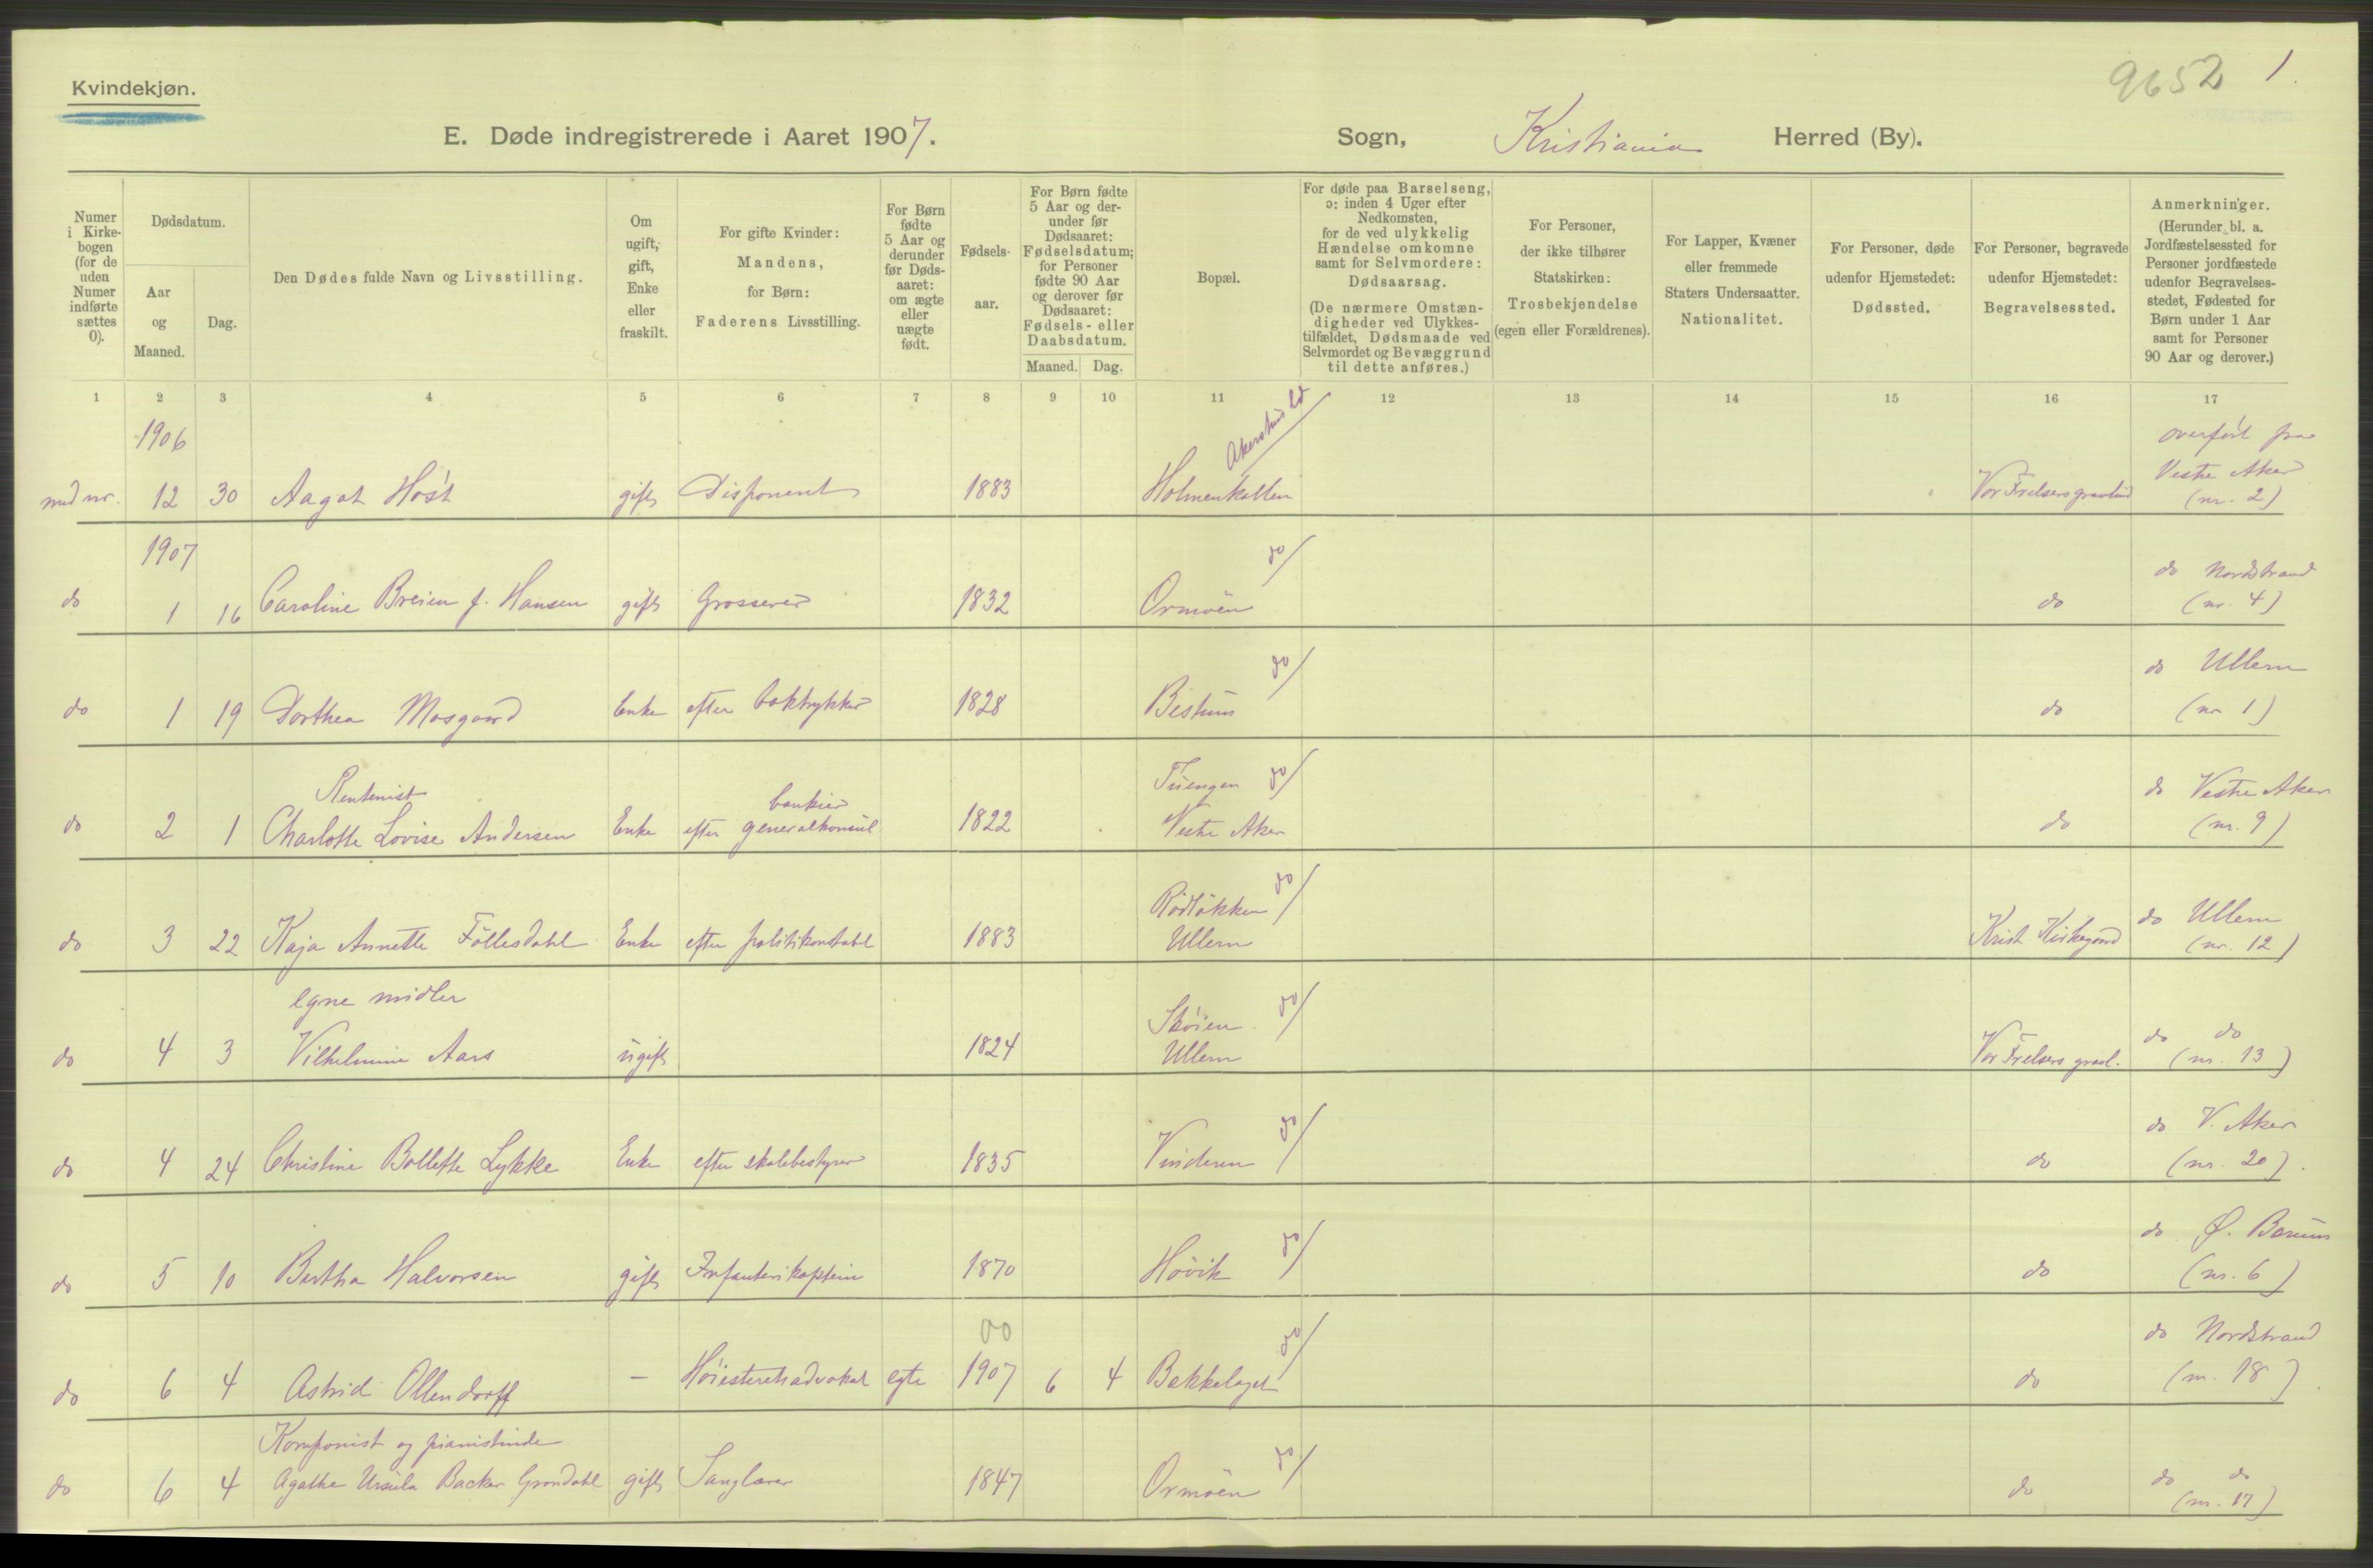 Kvindekjøn.
9652 1.
E. Døde indregistrerede i Aaret 1907. Sogn, Kristiania Herred (By).
Numer i Kirkebogen (for de uden Numer indførte sættes 0).
Dødsdatum.
Aar og Maaned.
Dag.
Den Dødes fulde Navn og Livsstilling.
Om ugift, gift, Enke eller fraskilt.
For gifte Kvinder: Mandens, for Børn: Faderens Livsstilling.
For Børn fødte 5 Aar og derunder før Dødsaaret: om ægte eller uægte født.
Fødselsaar.
For Børn fødte 5 Aar og derunder før Dødsaaret: Fødselsdatum; for Personer fødte 90 Aar og derover før Dødsaaret: Fødsels- eller Daabsdatum.
Maaned. Dag.
Bopæl.
For døde paa Barselseng, ɔ: inden 4 Uger efter Nedkomsten, for de ved ulykkelig Hændelse omkomne samt for Selvmordere: Dødsaarsag.
(De nærmere Omstændigheder ved Ulykkestilfældet, Dødsmaade ved Selvmordet og Bevæggrund til dette anføres.)
For Personer, der ikke tilhører Statskirken: Trosbekjendelse (egen eller Forældrenes).
For Lapper, Kvæner eller fremmede Staters Undersaatter. Nationalitet.
For Personer, døde udenfor Hjemstedet: Dødssted.
For Personer, begravede udenfor Hjemstedet: Begravelsessted.
Anmerkninger.
(Herunder bl. a. Jordfæstelsessted for Personer jordfæstede udenfor Begravelsesstedet, Fødested for Børn under 1 Aar samt for Personer 90 Aar og derover.)
1 2 3 4 5 6 7 8 9 10 11 12 13 14 15 16 17
1906 Akershus overført fra
12 30 Aagot Høst gift Disponent 1883 Holmenkollen Vor Frelsers gravlund Vestre Aker
(nr. 2)
1907 do do Nordstrand
do 1 16 Caroline Breien f. Hansen gift Grosserer 1832 Ormøen do (nr. 4)
do do Ullern
do 1 19 Dorthea Mosgaard Enke efter boktrykker 1828 Bestum do (nr 1)
Rentenist bankier Tuengen do do Vestre Aker
do 2 1 Charlotte Lovise Andersen Enke efter generalkonsul 1822 Vestre Aker do (nr. 9)
Rødløkken do do Ullern
do 3 22 Kaja Annette Föllesdahl Enke efter politikonstabel 1883 Ullern Krist Kirkegaard (nr. 12)
egne midler Skøien do do do
do 4 3 Vilhelmine Aars ugift 1824 Ullern Vor Frelsers gravl. (nr. 13)
do do V. Aker
do 4 24 Christine Bollette Lykke Enke efter skolebestyrer 1835 Vinderen do (nr. 20).
do do Ø. Bærum
do 5 10 Bertha Halvorsen gift Infanterikaptein 1870 Høvik do (nr. 6)
00 do do Nordstrand
do 6 4 Astrid Ollendorff — Høiesteretsadvokat egte 1907 6 4 Bækkelaget do (nr. 18)
Komponist og pianistinde do do do
do 6 4 Agathe Ursula Backer Grøndahl gift Sanglærer 1847 Ormøen do (nr. 17)